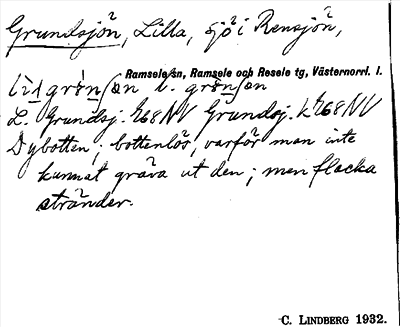 Grundsjön, Lilla, sjö i Rensjön,
Ramsele sn, Ramsele och Resele tg, Västernorrl. l.
L. Grundsj. K68NV Grundsj. K68NV
Dybotten; bottenlös, varför man inte
kunnat gräva ut den; men flacka
stränder.
C. LINDBERG 1932.